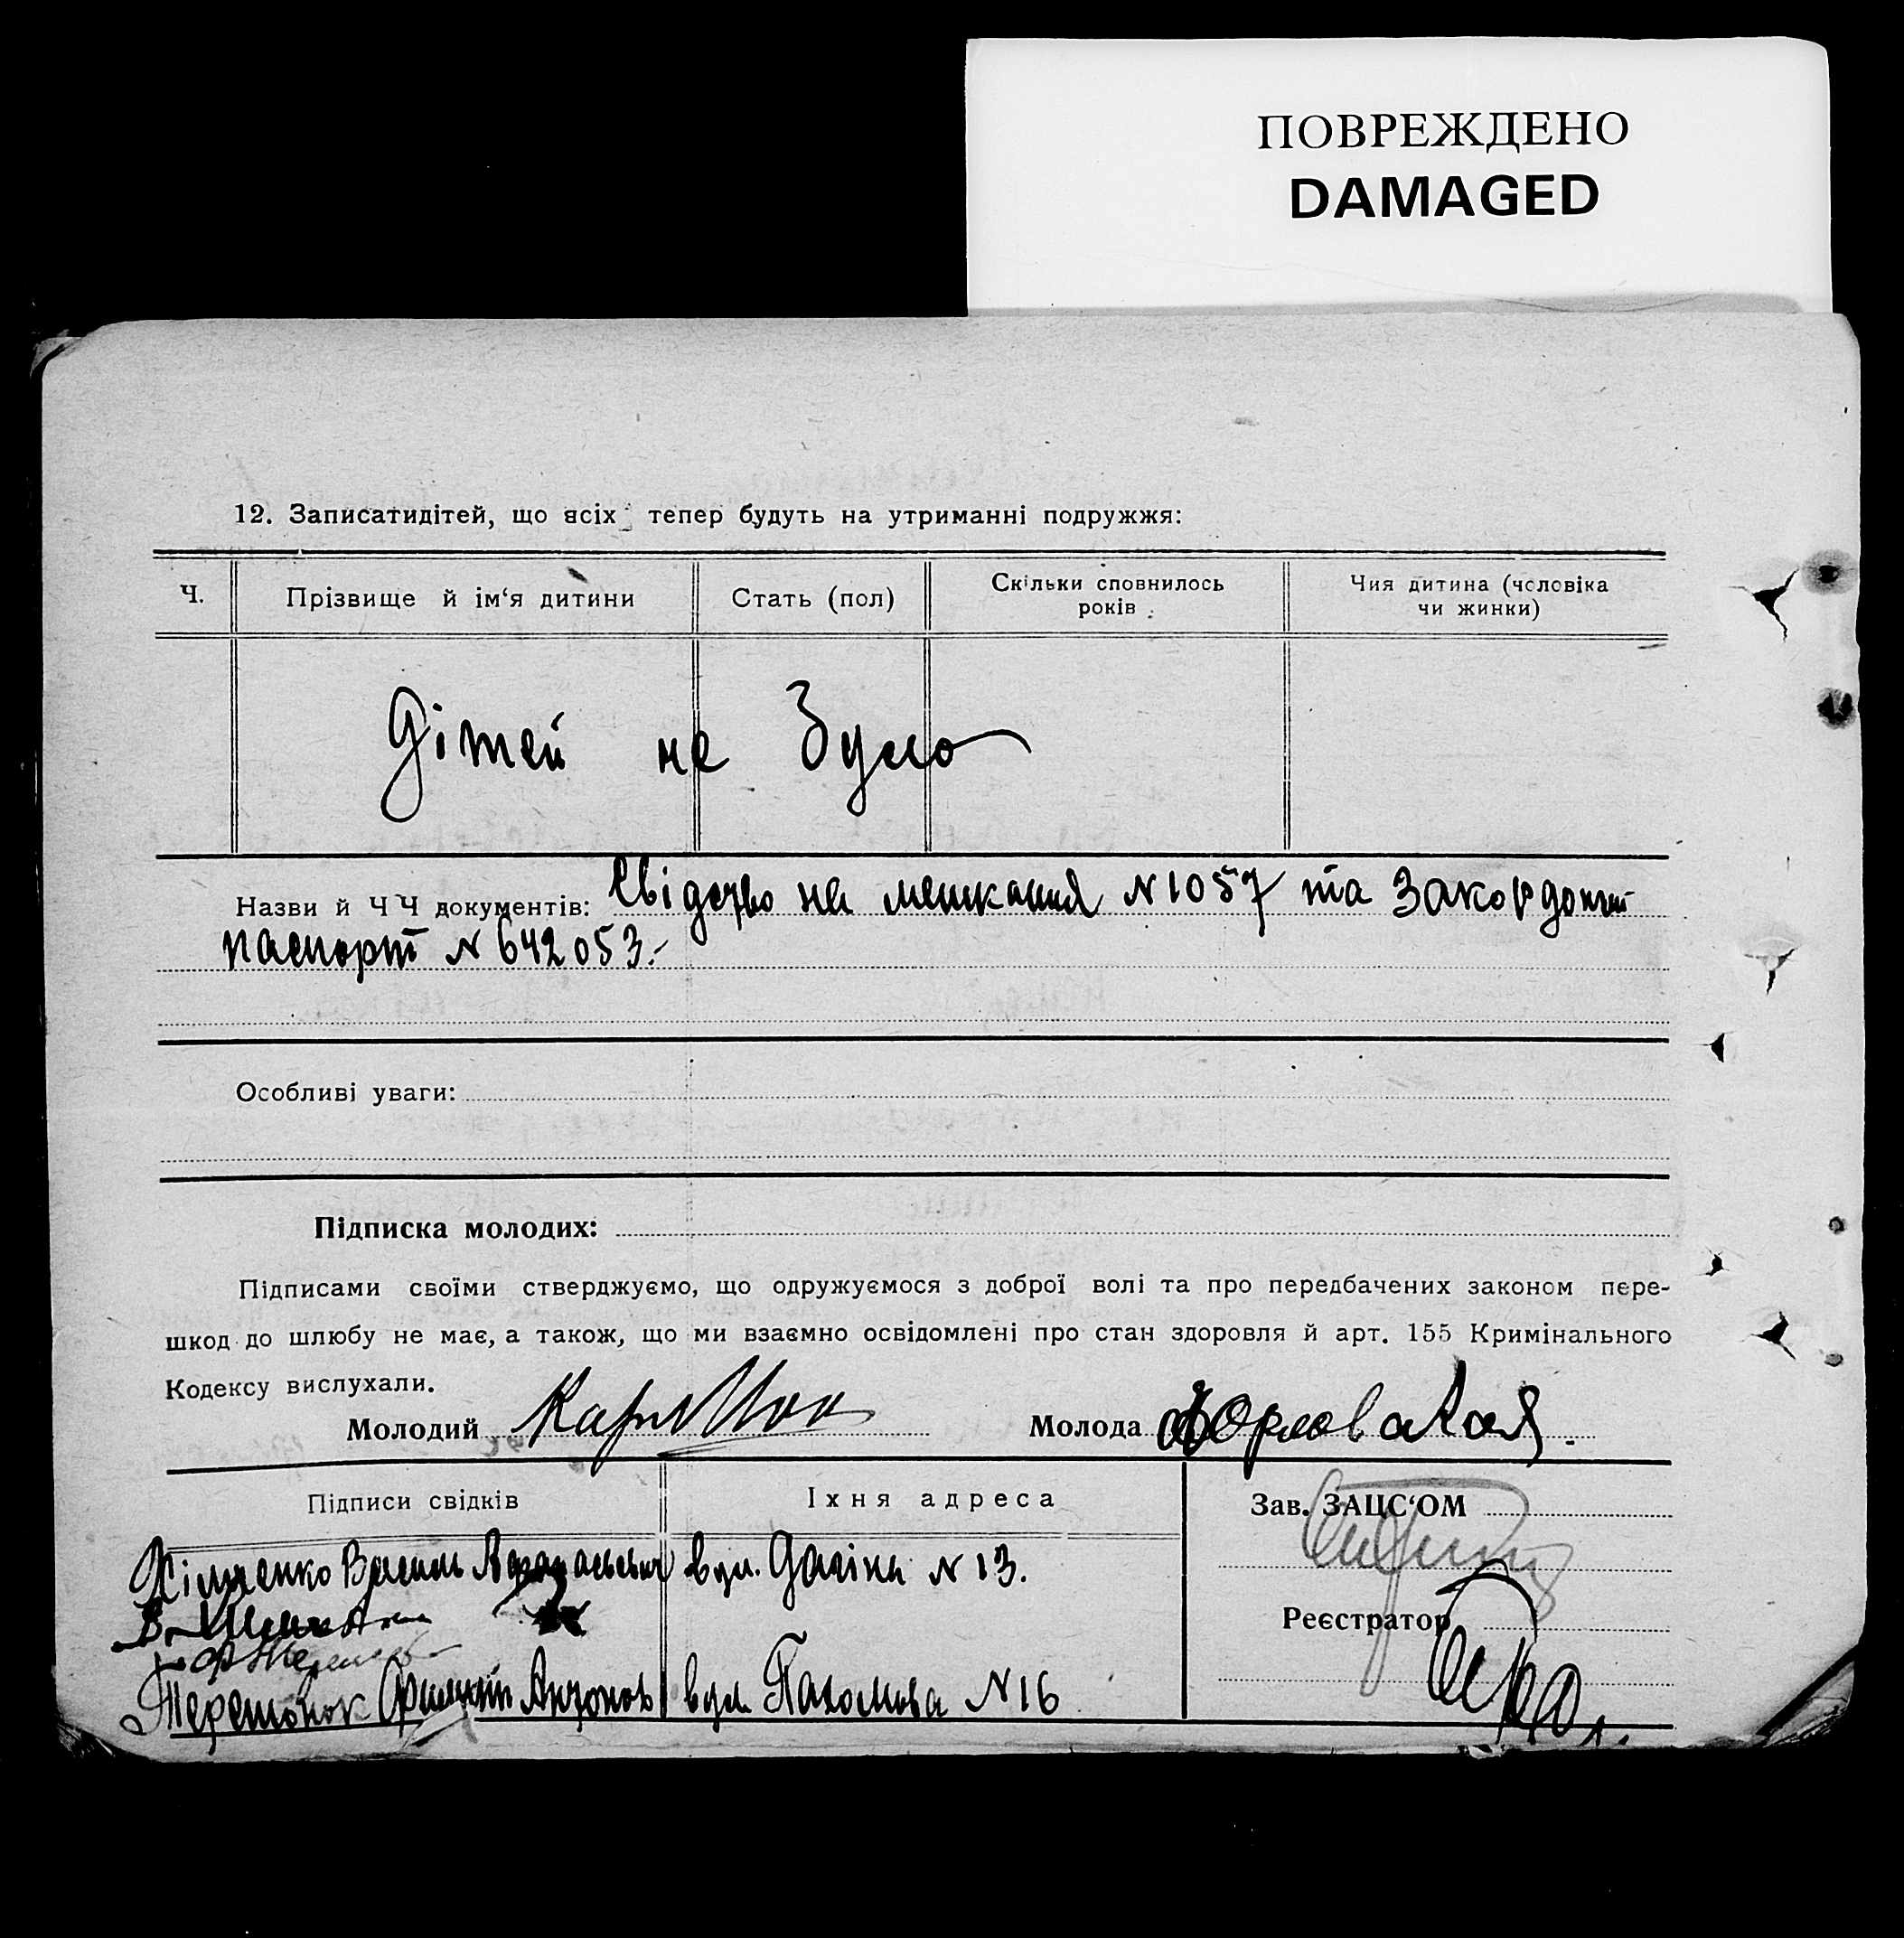 ПОВРЕЖДЕНО
DAMAGED
12. Записатидітей, що всіх тепер будуть на утриманні подружжя:
Ч.
Прізвище й ім‘я дитини
Стать (пол)
Скільки сповнилось
років
Чия дитина (чоловіка
чи жинки)
Дітей не було
Назви й ЧЧ документів: Свідотво на мешкання N 1057 та Закордоний
паспорт N 642053.-
Особливі уваги:
Підписка молодих:
Підписами своїми стверджуємо, що одружуємося з доброї волі та про передбачених законом пере-
шкод до шлюбу не має, а також, що ми взаємно освідомлені про стан здоровля й арт. 155 Кримінального
Кодексу вислухали.
Молодий
Молода
Підписи свідків
Їхня адреса
Зав. ЗАЦС‘ОМ
Василь вул. N 13.
Реєстратор
Антонов вул. Пахомова N 16